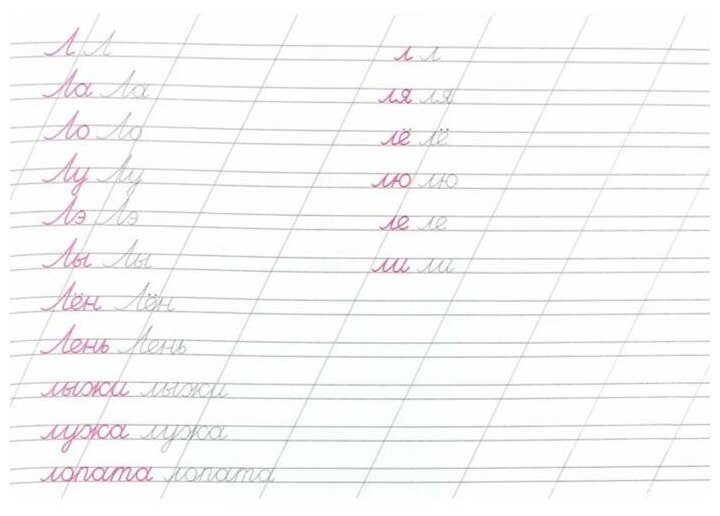 Л Л
Ла Ла
Ло Ло
Лу Лу
Лэ Лэ
Лы Лы
Лён Лён
Лень Лень
лыжи лыжи
лужа лужа
лопата лопата
л л
ля ля
лё лё
лю лю
ле ле
ли ли